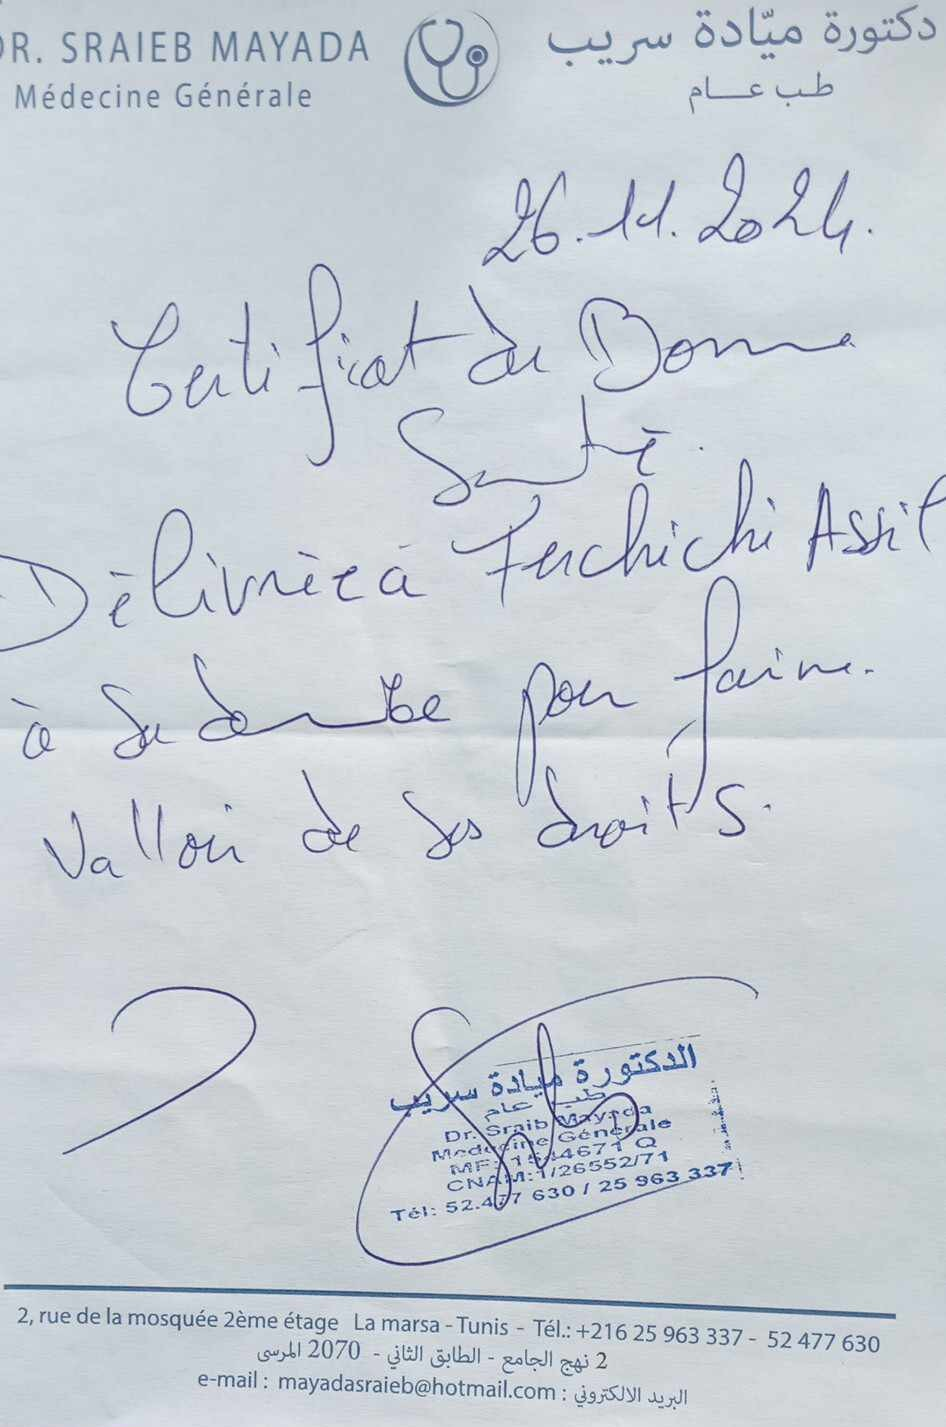 DR. SRAIEB MAYADA
Médecine Générale
دكتورة ميّادة سريب
طب عــام
26.11.2024.
Certificat de Bonne
Santé.
Délivrée à Ferchichi Assil
à sa demande pour faire
valloir de ses droits.
الدكتورة ميادة سريب
طب عام
Dr. Sraib Mayada
Medecine Générale
CNAM:1/26552/71
Tél: 52.477 630 / 25 963 337
2, rue de la mosquée 2ème étage La marsa - Tunis - Tél.: +216 25 963 337 - 52 477 630
2 نهج الجامع - الطابق الثاني - 2070 المرسى
e-mail : mayadasraieb@hotmail.com : البريد الالكتروني